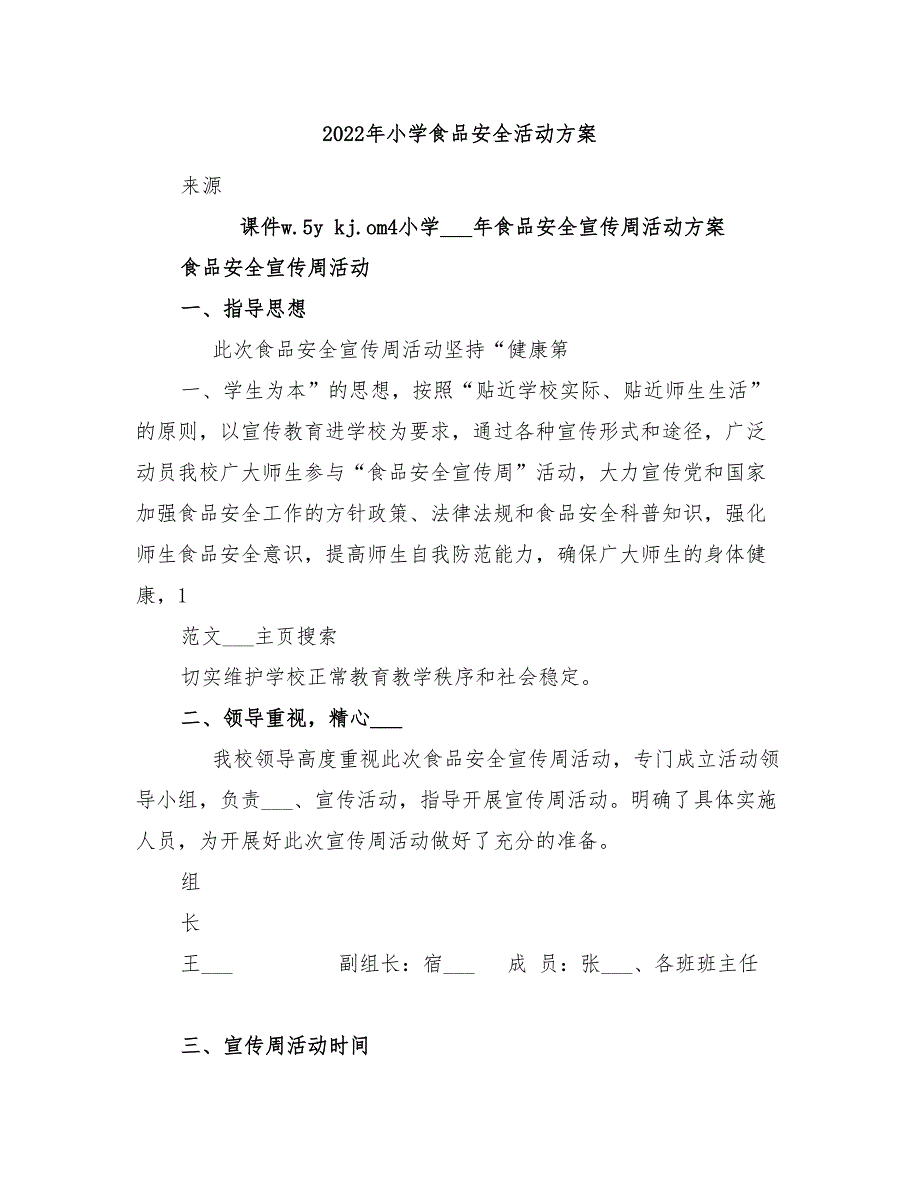 2022年小学食品安全活动方案
来源
课件w.5y kj.om4小学___年食品安全宣传周活动方案
食品安全宣传周活动
一、指导思想
此次食品安全宣传周活动坚持“健康第
一、学生为本”的思想，按照“贴近学校实际、贴近师生生活”
的原则，以宣传教育进学校为要求，通过各种宣传形式和途径，广泛
动员我校广大师生参与“食品安全宣传周”活动，大力宣传党和国家
加强食品安全工作的方针政策、法律法规和食品安全科普知识，强化
师生食品安全意识，提高师生自我防范能力，确保广大师生的身体健
康，1
范文___主页搜索
切实维护学校正常教育教学秩序和社会稳定。
二、领导重视，精心___
我校领导高度重视此次食品安全宣传周活动，专门成立活动领
导小组，负责___、宣传活动，指导开展宣传周活动。明确了具体实施
人员，为开展好此次宣传周活动做好了充分的准备。
组
长
王___ 副组长：宿___ 成 员：张___、各班班主任
三、宣传周活动时间